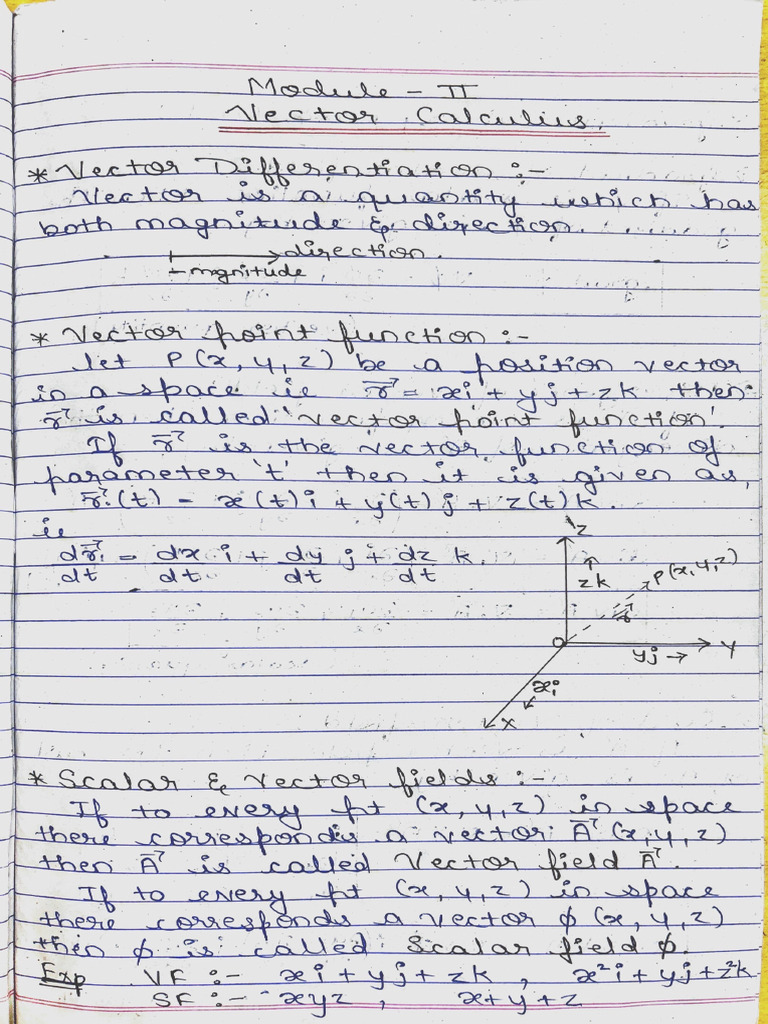 Module - II
Vector Calculus.
* Vector Differentiation :-
Vector is a quantity which has
both magnitude & direction.
direction.
magnitude
* Vector point function :-
let P(x, y, z) be a position vector
in a space ie r⃗ = xi + yj + zk then
r⃗ is called 'vector point function'.
If r⃗ is the vector function of
parameter 't' then it is given as,
r⃗(t) = x(t)i + y(t)j + z(t)k.
ie
dr⃗/dt = dx/dt i + dy/dt j + dz/dt k.
Z
zk
P(x, y, z)
r⃗
O
yj → Y
xi
X
* Scalar & Vector fields :-
If to every pt (x, y, z) in space
there corresponds a vector A⃗ (x, y, z)
then A⃗ is called Vector field A⃗.
If to every pt (x, y, z) in space
there corresponds a vector ϕ (x, y, z)
then ϕ is called Scalar field ϕ.
Exp VF :- xi + yj + zk , x²i + yj + z²k
SF :- xyz , x + y + z